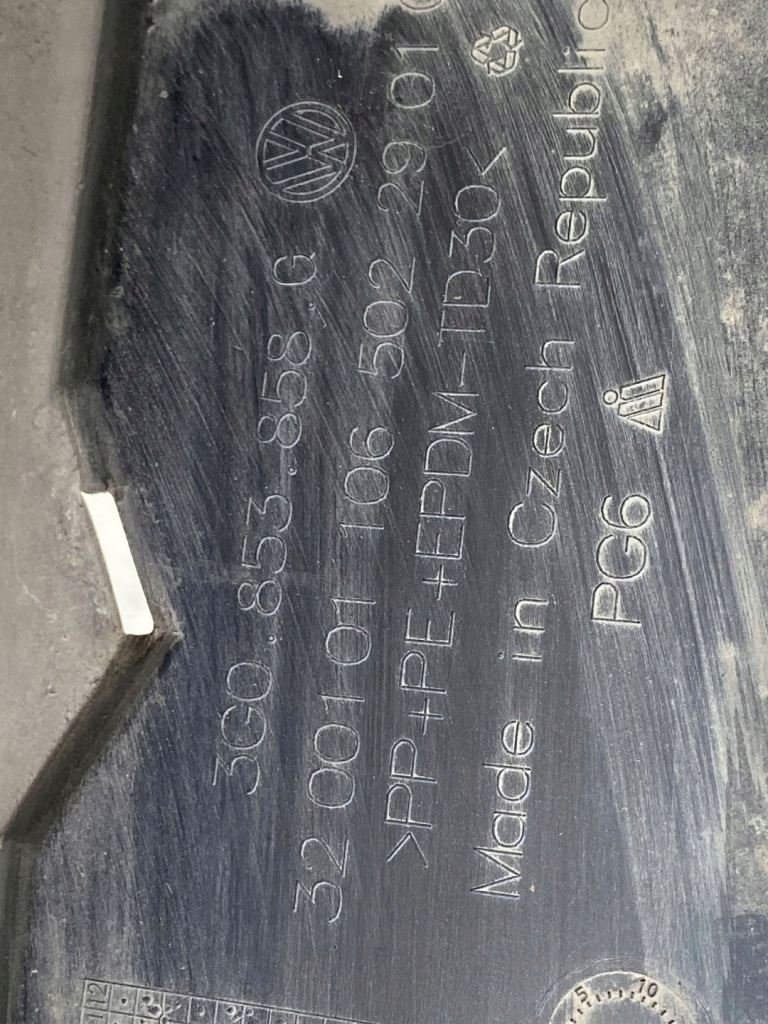 3G0.853.858.G
32 00101 106 502 29 01
>PP+PE+EPDM-TD30<
Made in Czech Republic
PG6
12
5 10